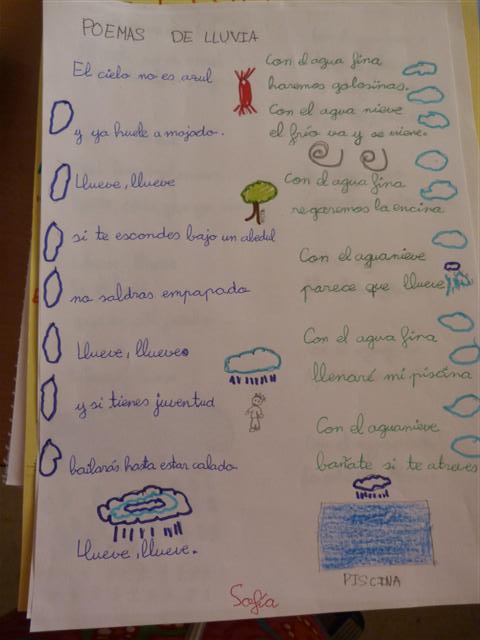 POEMAS DE LLUVIA
El cielo no es azul
y ya huele a mojado.
Llueve, llueve
si te escondes bajo un abedul
no saldras empapado
Llueve, llueve
y si tienes juventud
bailarás hasta estar calado
Llueve, llueve.
Con el agua fina
haremos golosinas.
Con el agua nieve
el frío va y se viene.
Con el agua fina
regaremos la encina
Con el aguanieve
parece que llueve
Con el agua fina
llenaré mi piscina
Con el aguanieve
bañate si te atreves
PISCINA
Sofía